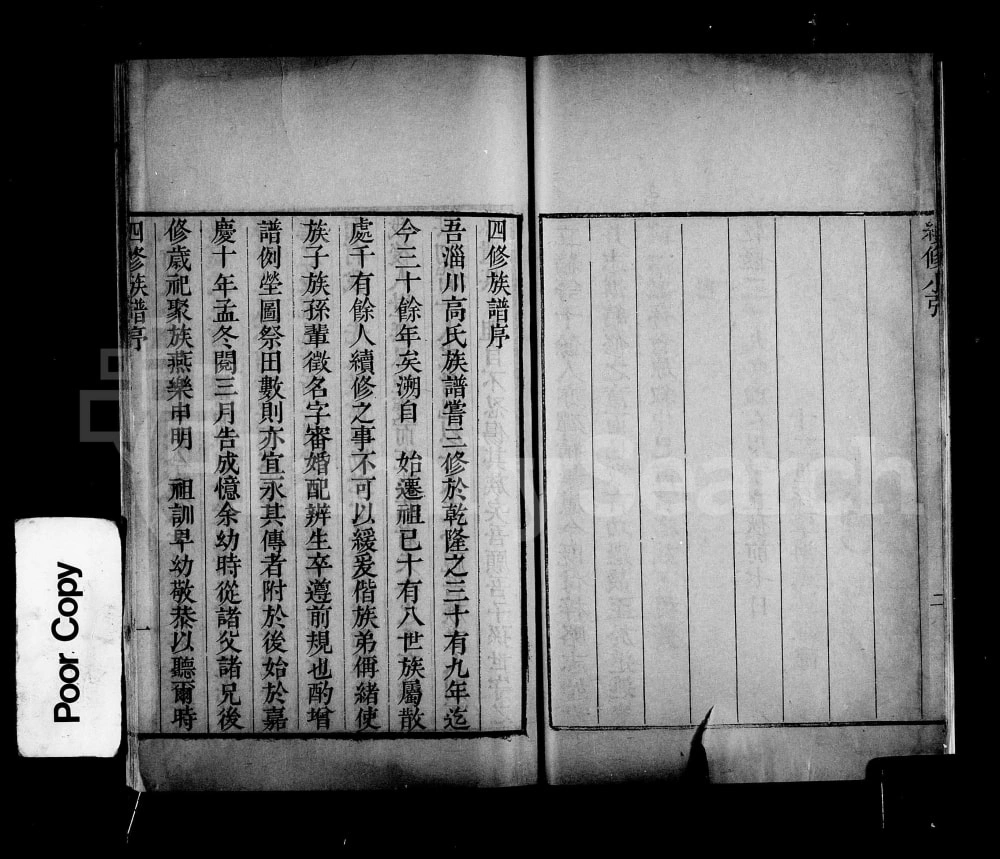 續修小引
二
四修族譜序
吾淄川高氏族譜嘗三修於乾隆之三十有九年迄
今三十餘年矣溯自 始遷祖已十有八世族屬散
處千有餘人續修之事不可以緩爰偕族弟偁緒使
族子族孫輩徵名字審婚配辨生卒遵前規也酌增
譜例塋圖祭田數則亦宜永其傳者附於後始於嘉
慶十年孟冬閱三月告成憶余幼時從諸父諸兄後
修歲祀聚族燕樂申明 祖訓卑幼敬恭以聽爾時
四修族譜序
一
Poor Copy
FamilySearch